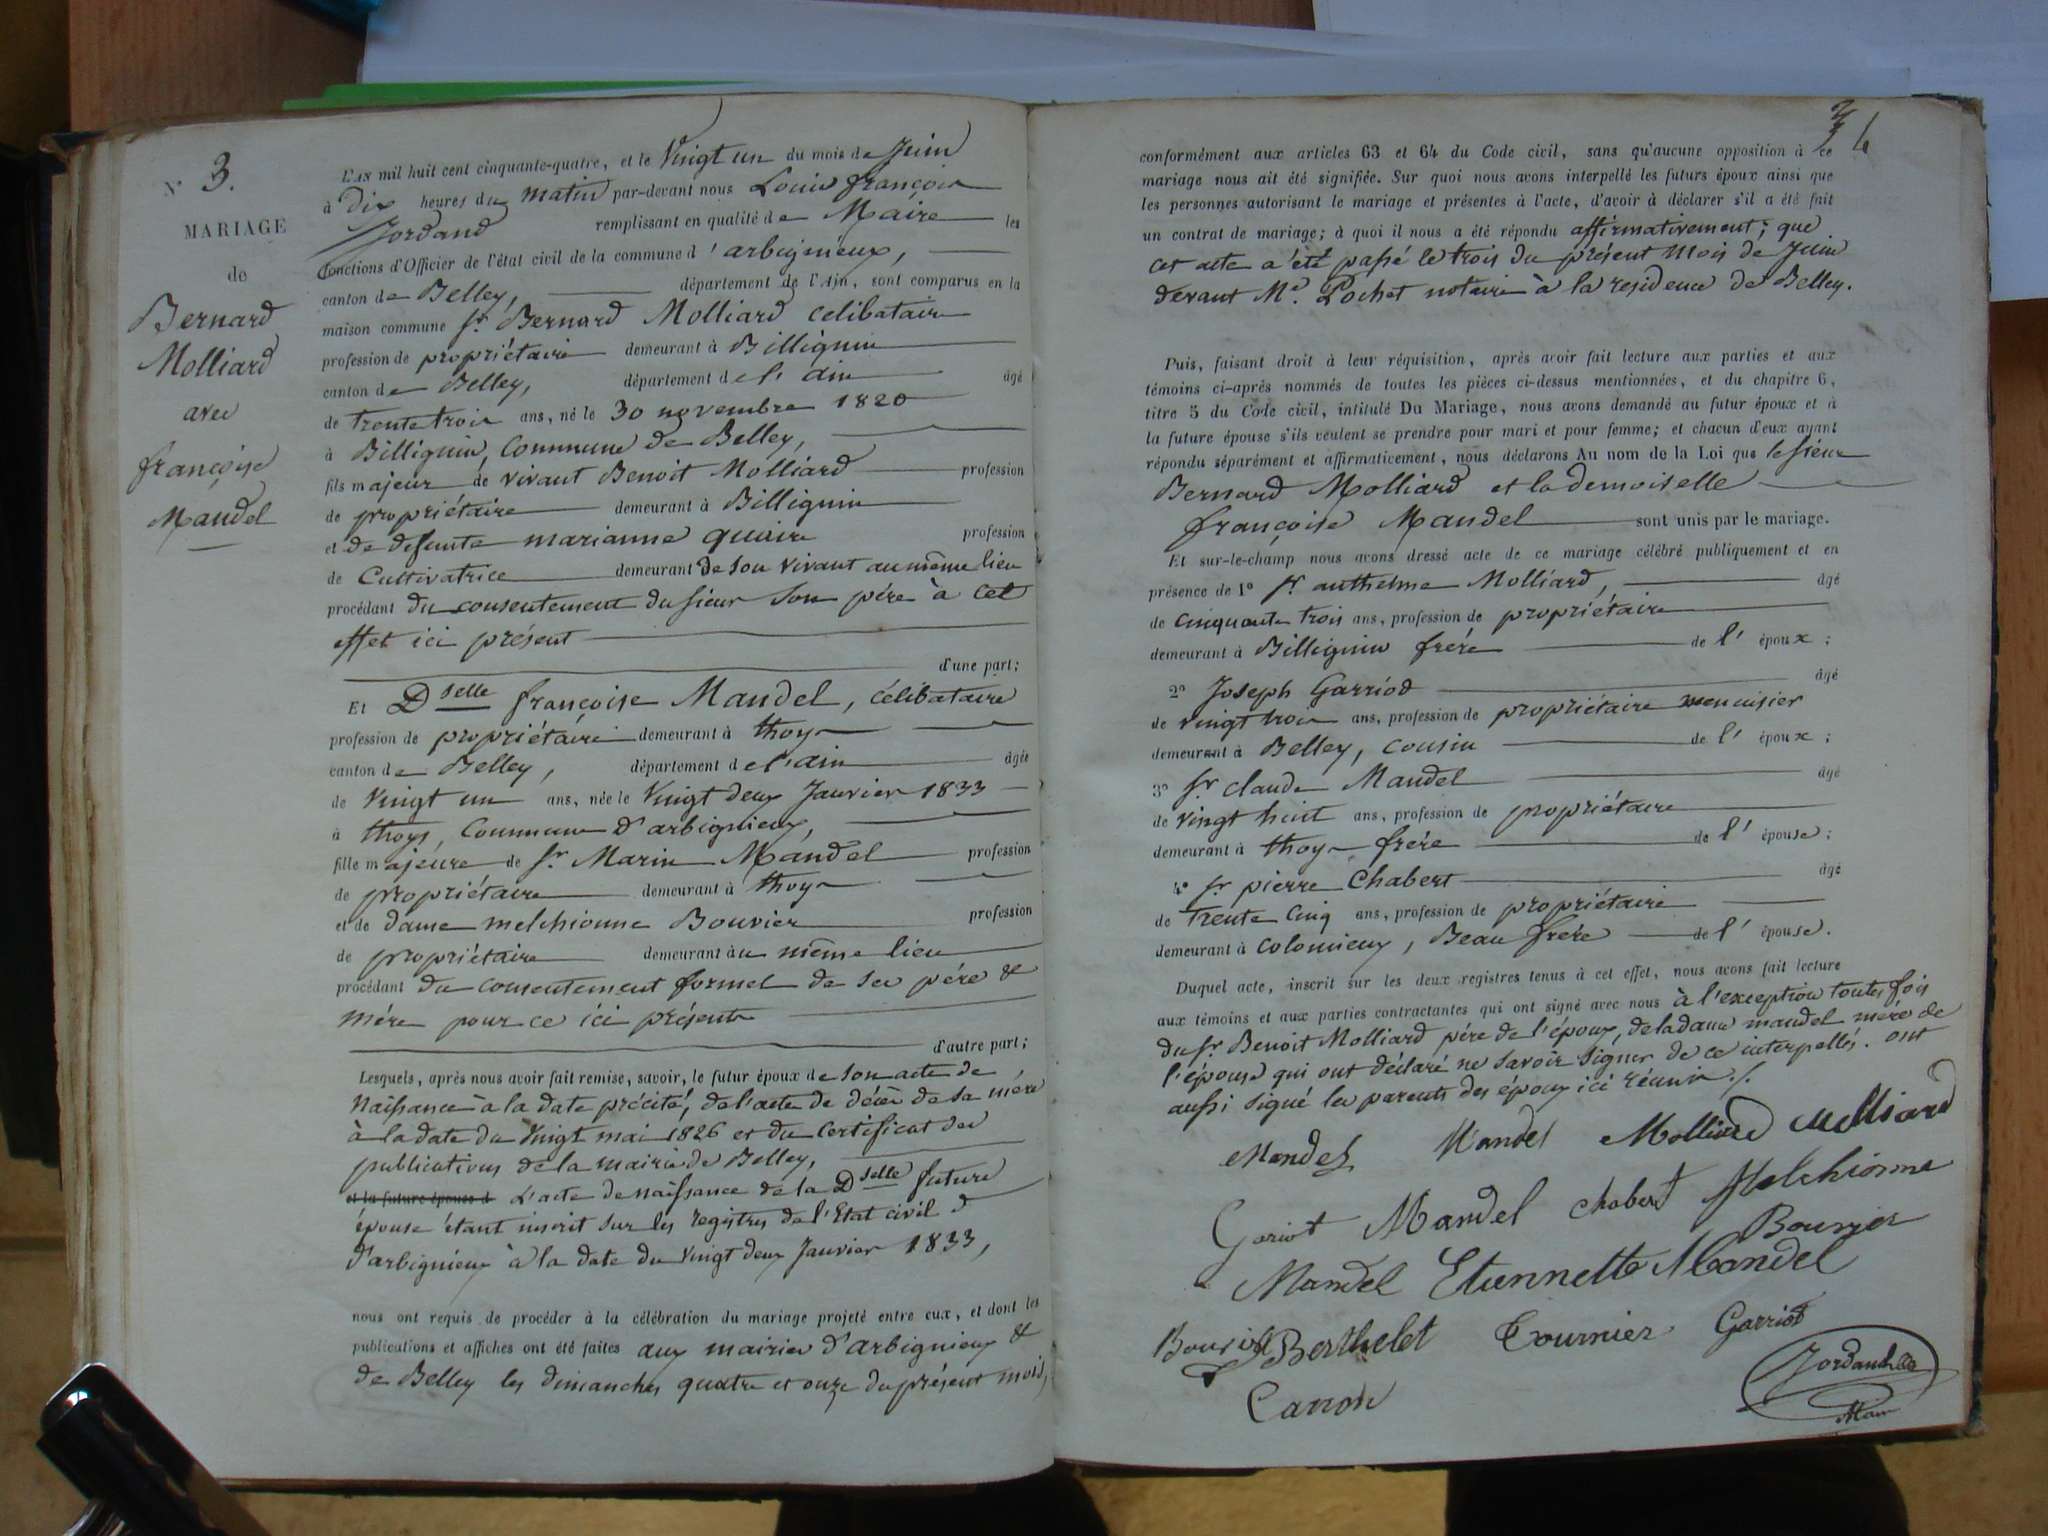 N° 3.
MARIAGE
de
Bernard
Molliard
avec
françoise
Mandel
L'AN mil huit cent cinquante-quatre, et le Vingt un du mois de Juin
à dix heures du matin par-devant nous Louis françois
Jordand remplissant en qualité de Maire les
fonctions d'Officier de l'état civil de la commune d'arbignieux,
canton de Belley, département de l'Ain, sont comparus en la
maison commune Sr. Bernard Molliard celibataire
profession de propriétaire demeurant à Billignin
canton de Belley, département de l'ain âgé
de trente trois ans, né le 30 novembre 1820
à Billignin, Commune de Belley,
fils majeur de vivant Benoit Molliard profession
de propriétaire demeurant à Billignin
et de defunte marianne quaire profession
de Cultivatrice demeurant de son vivant au même lieu
procédant du consentement du sieur son pére à cet
effet ici présent
d'une part;
Et Dselle françoise Mandel, célibataire
profession de propriétaire demeurant à thoys
canton de Belley, département de l'ain âgée
de Vingt un ans, née le Vingt deux Janvier 1833
à thoys, Commune d'arbignieux,
fille majeure de Sr. Marin Mandel profession
de propriétaire demeurant à thoys
et de dame melchionne Bouvier profession
de propriétaire demeurant au même lieu
procédant du consentement formel de ses pére &
mére pour ce ici présents
d'autre part;
Lesquels, après nous avoir fait remise, savoir, le futur époux de son acte de
Naissance à la date précité, de l'acte de décès de sa mére
à la date du Vingt mai 1826 et du Certificat des
publications de la mairie de Belley,
et la future épouse d L'acte de naissance de la Dselle future
épouse étant inscrit sur les registres de l'Etat civil d
d'arbignieux à la date du Vingt deux Janvier 1833,
nous ont requis de procéder à la célébration du mariage projeté entre eux, et dont les
publications et affiches ont été faites aux mairies d'arbignieux &
de Belley les dimanches quatre et onze du présent mois,
conformément aux articles 63 et 64 du Code civil, sans qu'aucune opposition à ce
mariage nous ait été signifiée. Sur quoi nous avons interpellé les futurs époux ainsi que
les personnes autorisant le mariage et présentes à l'acte, d'avoir à déclarer s'il a été fait
un contrat de mariage; à quoi il nous a été répondu affirmativement; que
cet acte a été passé le trois du présent mois de Juin
devant Me. Pochet notaire à la residence de Belley.
Puis, faisant droit à leur réquisition, après avoir fait lecture aux parties et aux
témoins ci-après nommés de toutes les pièces ci-dessus mentionnées, et du chapitre 6,
titre 5 du Code civil, intitulé Du Mariage, nous avons demandé au futur époux et à
la future épouse s'ils veulent se prendre pour mari et pour femme; et chacun d'eux ayant
répondu séparément et affirmativement, nous déclarons Au nom de la Loi que le sieur
Bernard Molliard et la demoiselle
françoise Mandel sont unis par le mariage.
Et sur-le-champ nous avons dressé acte de ce mariage célébré publiquement et en
présence de 1° Sr. anthelme Molliard, âgé
de cinquante trois ans, profession de propriétaire
demeurant à Billignin frére de l'époux;
2° Joseph Garriod âgé
de vingt trois ans, profession de propriétaire menuisier
demeurant à Belley, cousin de l'époux;
3° Sr. claude Mandel âgé
de vingt huit ans, profession de propriétaire
demeurant à thoys frére de l'épouse;
4° Sr pierre Chabert âgé
de trente cinq ans, profession de propriétaire
demeurant à colomieux, Beau frére de l'épouse.
Duquel acte, inscrit sur les deux registres tenus à cet effet, nous avons fait lecture
aux témoins et aux parties contractantes qui ont signé avec nous à l'exception toutes fois
du Sr. Benoit Molliard pére de l'époux, de la dame mandel mére de
l'épouse qui ont déclaré ne savoir signer de ce interpellés. ont
aussi signé les parents des époux ici réunis./.
Mandel Mandel Molliard Molliard
Goriot Mandel chabert Melchionne
Bouvier
Mandel Etiennette Mandel
Berthelet Tournier Garriod
Carron Jordand
Maire